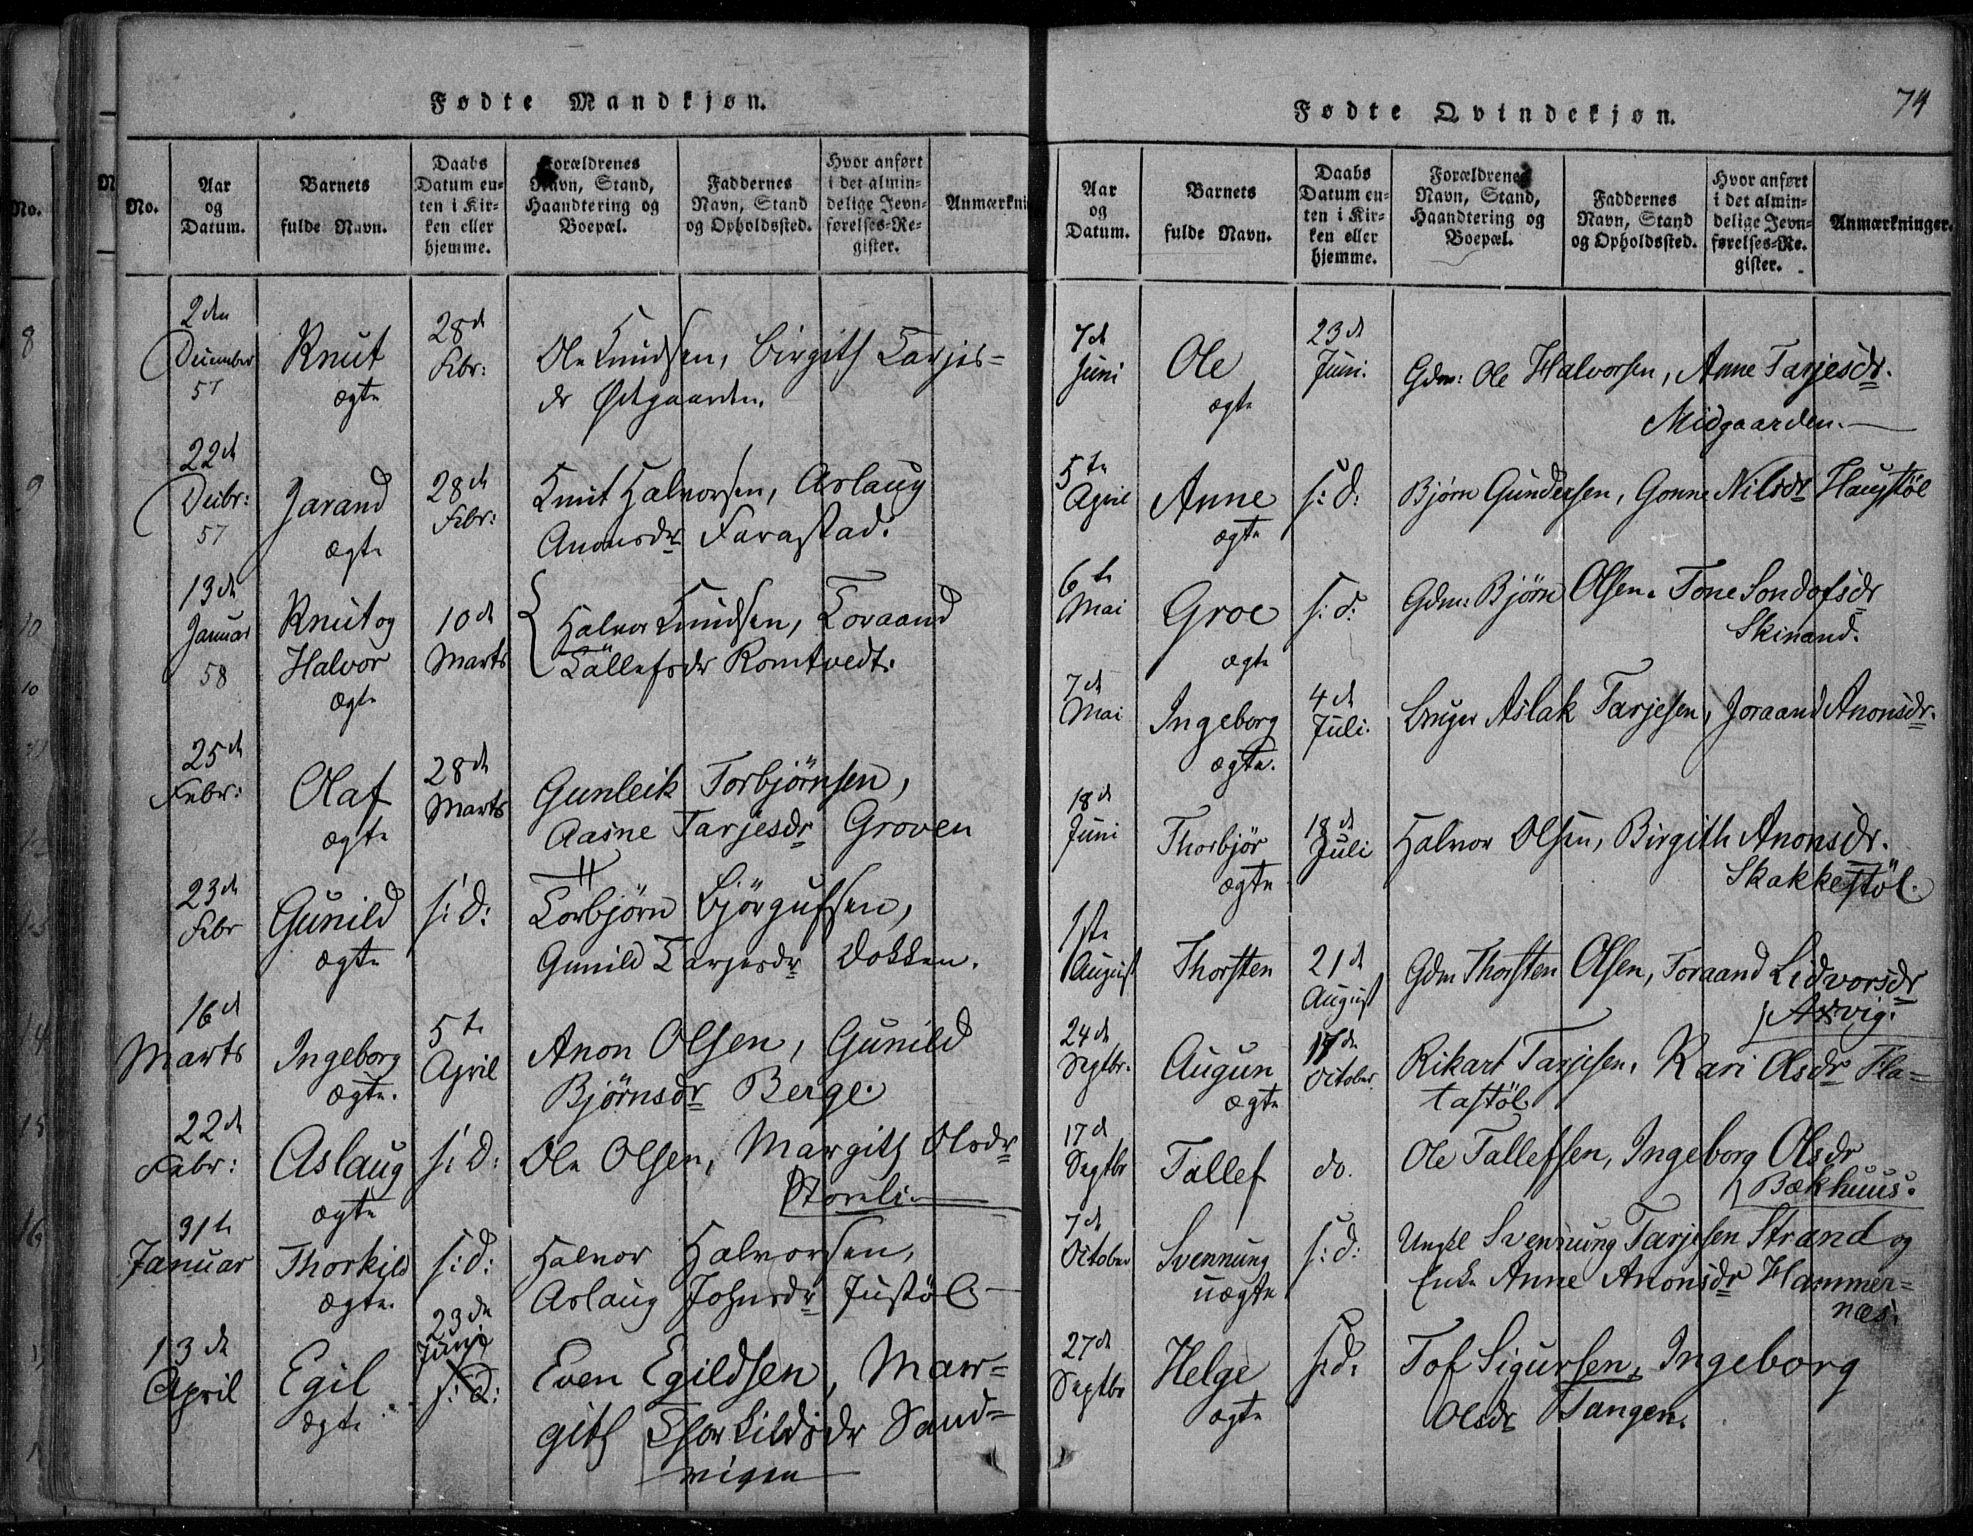 Fødte Mandkjøn.
No.
Aar og Datum.
Barnets fulde Navn.
Daabs Datum enten i Kirken eller hjemme.
Forældrenes Navn, Stand, Haandtering og Boepæl.
Faddernes Navn, Stand og Opholdssted.
Hvor anført i det almindelige Jevnførelses-Register.
Anmærkni
2den December 57
Knut ægte
28d Febr:
Ole Knudsen, Birgith Tarjes=
dr Østgaarden.
22d Decbr: 57
Jarand ægte
28d Febr:
Knut Halvorsen, Aslaug
Anonsdr Farastad.
13de Januar 58
Knut og Halvor ægte
10d Marts
Halvor Knudsen, Toraand
Tallefsdr Romtvedt.
25d Febr:
Olaf ægte
28d Marts
Gunleik Torbjørnsen,
Aasne Tarjesdr Groven
23d Febr
Gunild ægte
s: d:
Torbjørn Bjørgufsen,
Gunild Tarjesdr Dokken.
16d Marts
Ingeborg ægte.
5te April
Anon Olsen, Gunild
Bjørnsdr Berge.
22d Febr:
Aslaug ægte
s: d:
Ole Olsen, Margith Olsdr
Storeli.
31te Januar
Thorkild ægte.
s: d:
Halvor Halvorsen,
Aslaug Johnsdr Justøl
13de April
Egil ægte
23de Juni
s: d:
Even Egildsen, Mar=
gith Thorkildsdr Sand=
vigen
Fødte Qvindekjøn.
74
Aar og Datum.
Barnets fulde Navn.
Daabs Datum enten i Kirken eller hjemme.
Forældrenes Navn, Stand, Haandtering og Boepæl.
Faddernes Navn, Stand og Opholdssted.
Hvor anført i det almindelige Jevnførelses-Register.
Anmærkninger.
7d Juni
Ole ægte
23d Juni.
Gdm: Ole Halvorsen, Anne Tarjesdr.
Midgaarden.
5te April
Anne ægte
s: d:
Bjørn Gundersen, Gonne Nilsdr Haugstøl
6te Mai
Groe ægte
s: d:
Gdm: Bjørn Olsen. Tone Sondofsdr
Skinand.
7d Mai
Ingeborg ægte.
4d Juli.
Bruger Aslak Tarjesen, Joraand Anonsdr.
18d Juni
Thorbjør ægte
18d Juli
Halvor Olsen, Birgith Anonsdr.
Skakkestøl.
1ste August
Thorsten
21d August
Gdm Thorsten Olsen, Toraand Lidvorsdr
Axvig.
24de Septbr.
Augun ægte
17de October.
Rikart Tarjesen. Kari Olsdr Fla=
tastøl
17d Septbr
Tallef
do.
Ole Tallefsen, Ingeborg Olsdr
Bækhuus.
7d October
Svennung uægte
s: d:
Ungkl Svennung Tarjesen Strand og
Enke Anne Anonsdr Hammer=
næs.
27de Septbr
Helge ægte
s: d:
Tof Sigursen, Ingeborg
Olsdr Tangen.